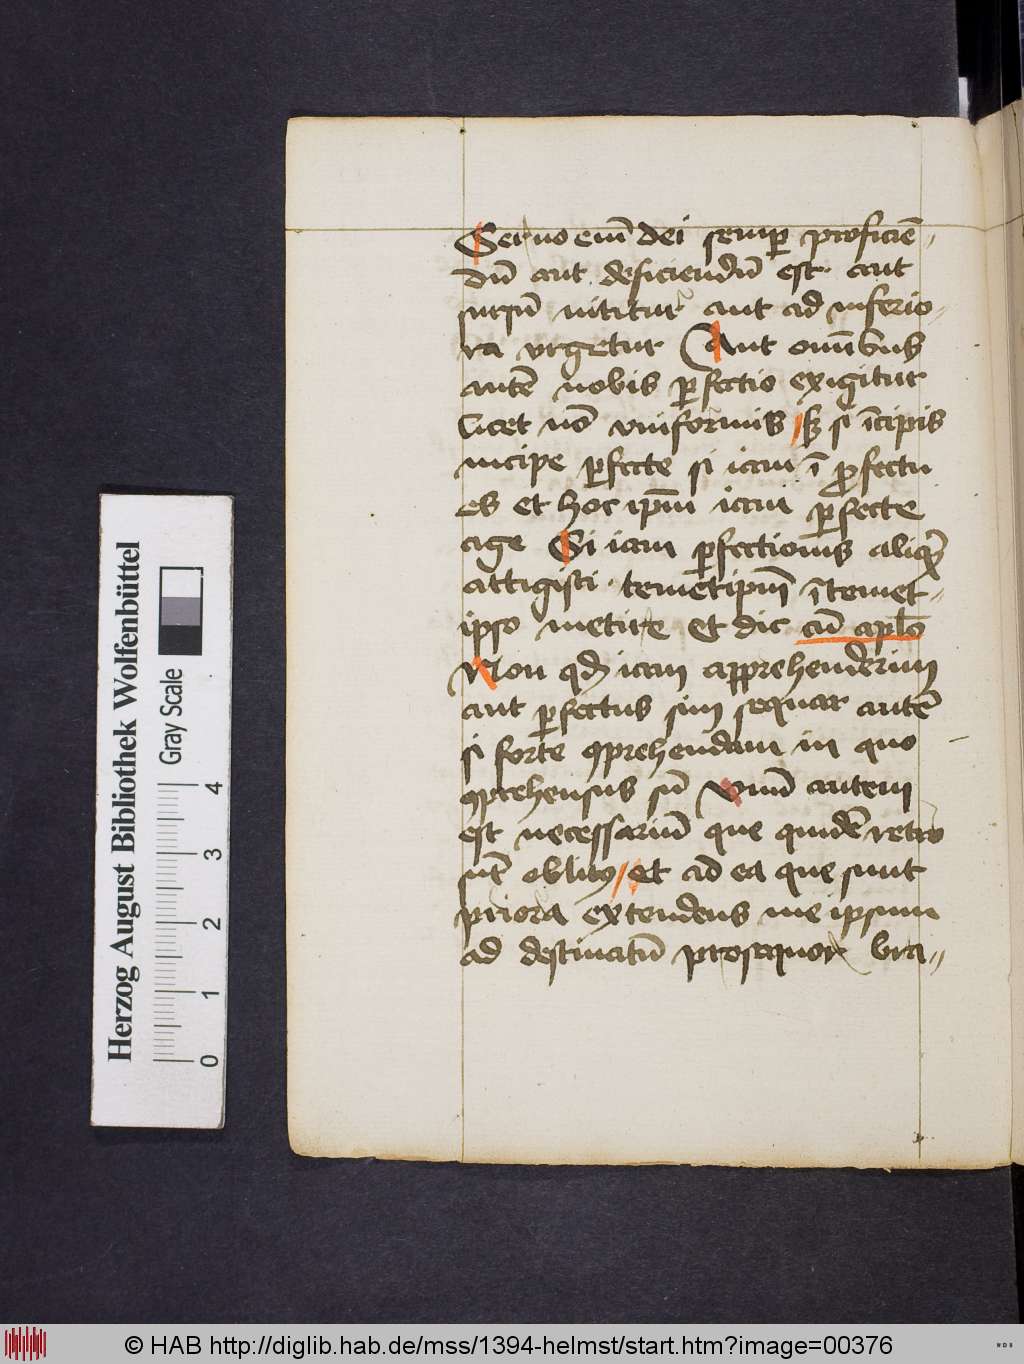 Seruo eni̅ dei semꝑ proficie̅-
du̅ aut deficiendu̅ est aut
sursu̅ nititur aut ad inferio-
ra vrgetur Aut om̅ibus
aute̅ nobis ꝑfectio exigitur
licet no̅ vniformis sꝫ si i̅cipis
incipe ꝑfecte si iam i̅ ꝓfectu
es et hoc ip̅m iam ꝑfecte
age Si iam ꝑfectionis aliqͥd
attigisti teme̅tip̅m i̅ temet-
ipso metire et dic cu̅ aplo̅
Non qd̛ iam apprehenderim
aut ꝑfectus sim sequar aute̅
si forte ꝯprehendam in quo
ꝯprehensus su̅ Vnu̅ autem
est necessariu̅ que quide̅ retro
su̅t oblitꝯ et ad ea que sunt
priora extendens me ipsum
ad destinatu̅ prosequor bra-
Herzog August Bibliothek Wolfenbüttel
Gray Scale
0 1 2 3 4
© HAB http://diglib.hab.de/mss/1394-helmst/start.htm?image=00376